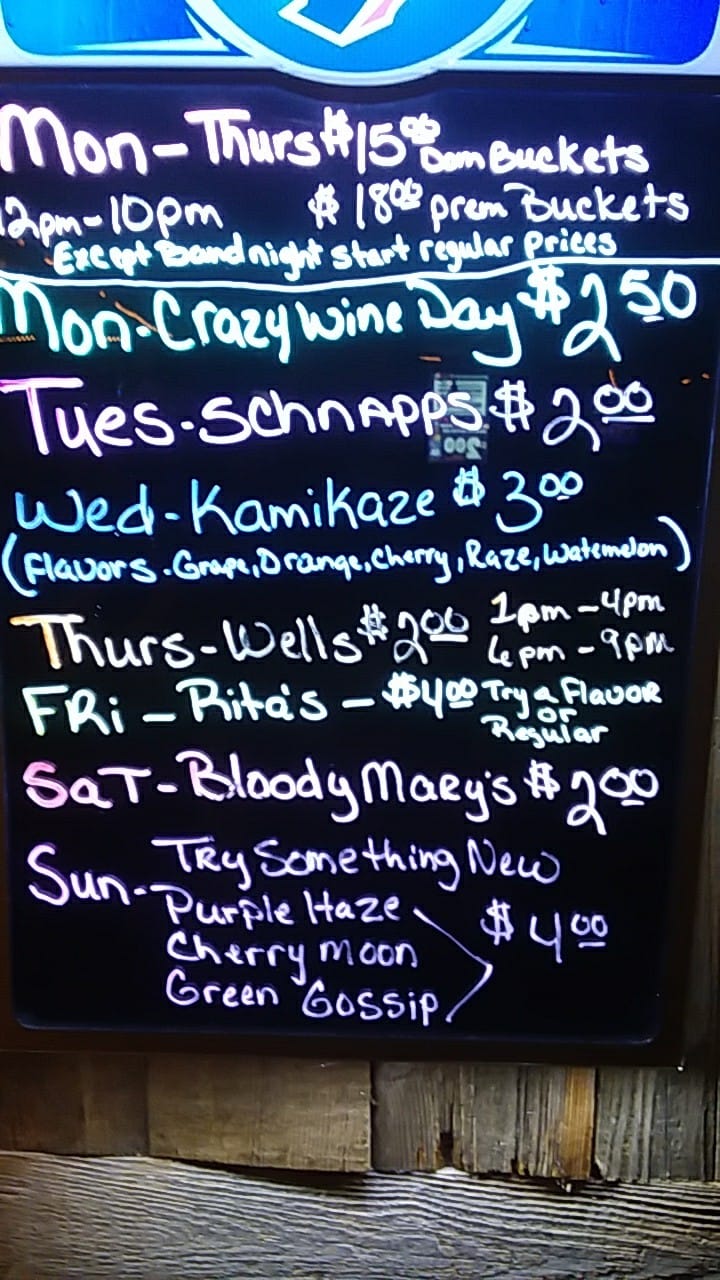 Mon-Thurs $15.00 Dom Buckets
12pm-10pm $18.00 prem Buckets
Except Band night start regular prices
Mon-Crazy Wine Day $2.50
Tues-Schnapps $2.00
Wed-Kamikaze $3.00
(Flavors.Grape,Orange,Cherry,Raze,Watemelon)
Thurs-Wells $2.00 1pm-4pm
6pm-9pm
FRi-Rita's-$4.00 Try a Flavor
or
Regular
SaT-Bloody Mary's $2.00
Sun-Try Something New
Purple Haze
Cherry Moon $4.00
Green Gossip